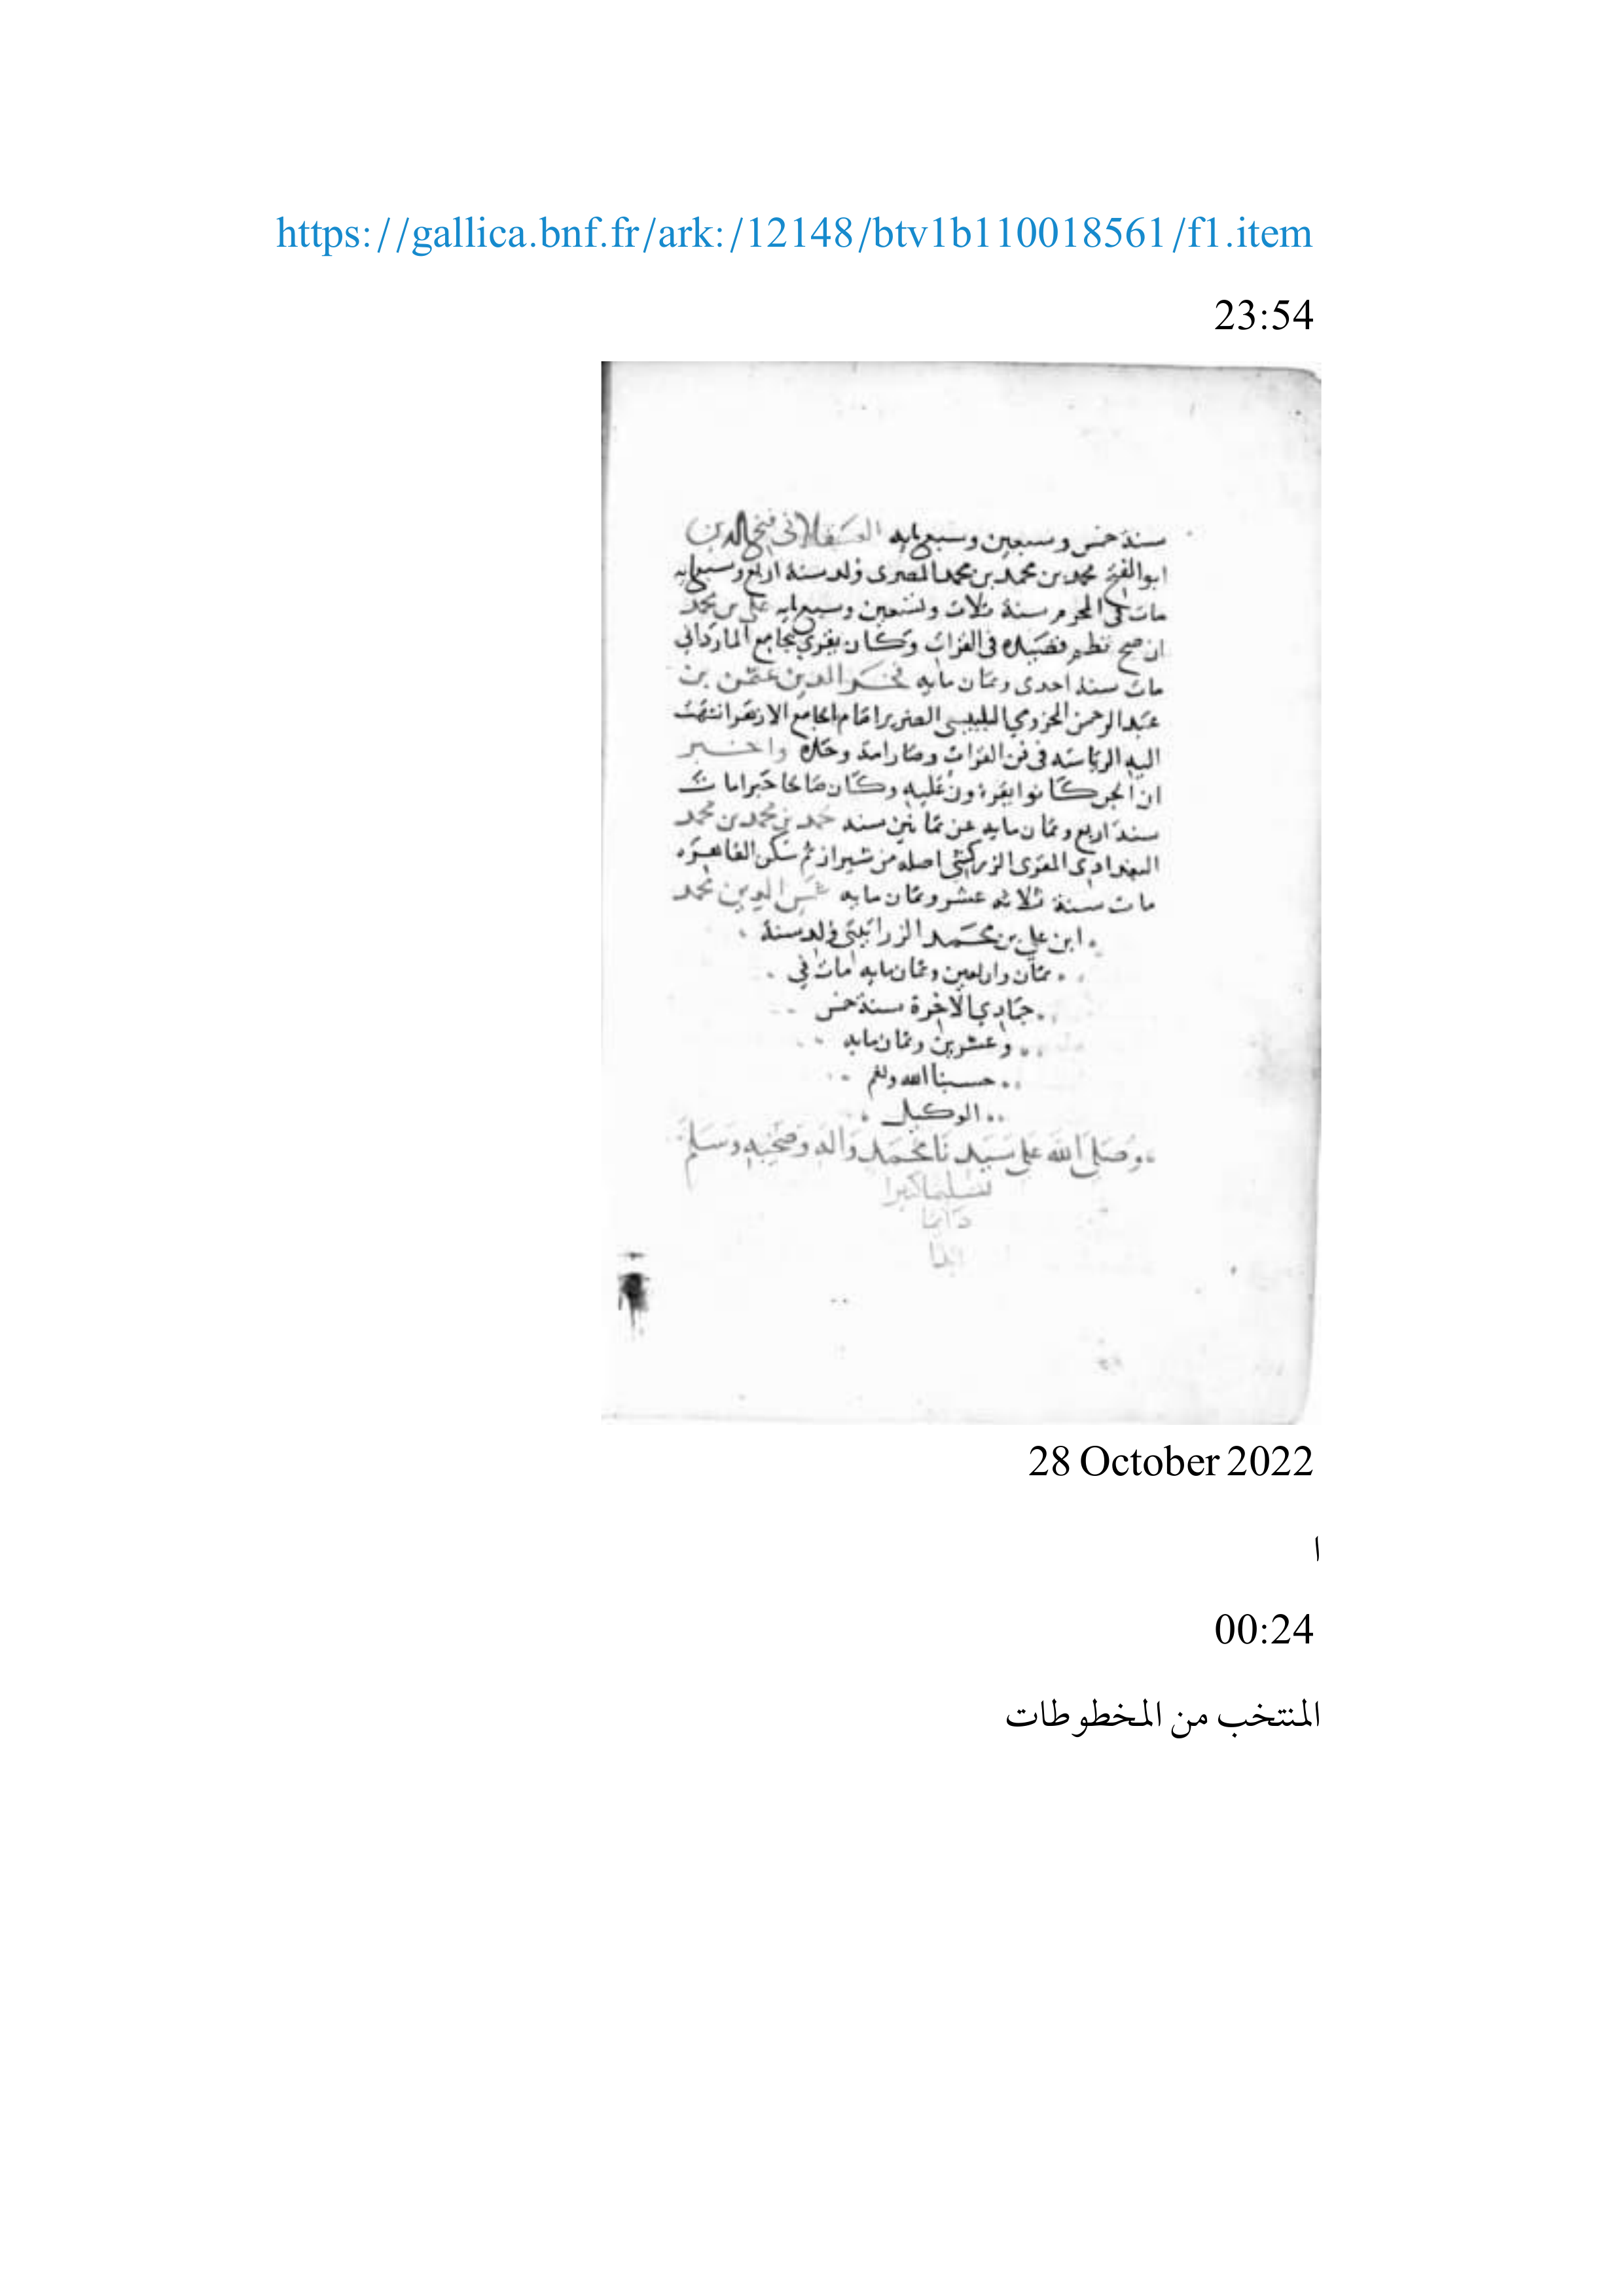 https://gallica.bnf.fr/ark:/12148/btv1b110018561/f1.item
23:54
سنة خمس وسبعين وسبعمايه العسقلاني فتح الدين
ابو الفتح محمد بن محمد بن محمد المصرى ولد سنة اربع وسبعمايه
مات فى المحرم سنة ثلاث وتسعين وسبعمايه على بن محمد
فى القرات وكان يقرى بجامع الماردانى
مات سنة احدى وثمان مايه فخر الدين عثمن بن
عبد الرحمن المخزومي البلبيسى الضرير امام الجامع الازهر انتهت
اليه الرياسه فى فن القرات وصار امة وحده واخبر
ان الجن كانوا يقرءون عليه وكان صالحا خيرا مات
سنة اربع وثمان مايه عن ثمانين سنه محمد بن محمد بن محمد
البغدادى المقرى الزركشى اصله من شيراز ثم سكن القاهره
مات سنة ثلاثه عشر وثمان مايه شمس الدين محمد
ابن علي بن محمد الزراتيتى ولد سنة
ثمان واربعين وثمان مايه مات في
جمادي الاخرة سنة خمس
وعشرين وثمان مايه
حسبنا الله ونعم
الوكيل
وصلى الله على سيدنا محمد واله وصحبه وسلم
تسليما كثيرا
دايما
ابدا
28 October 2022
ا
00:24
المنتخب من المخطوطات